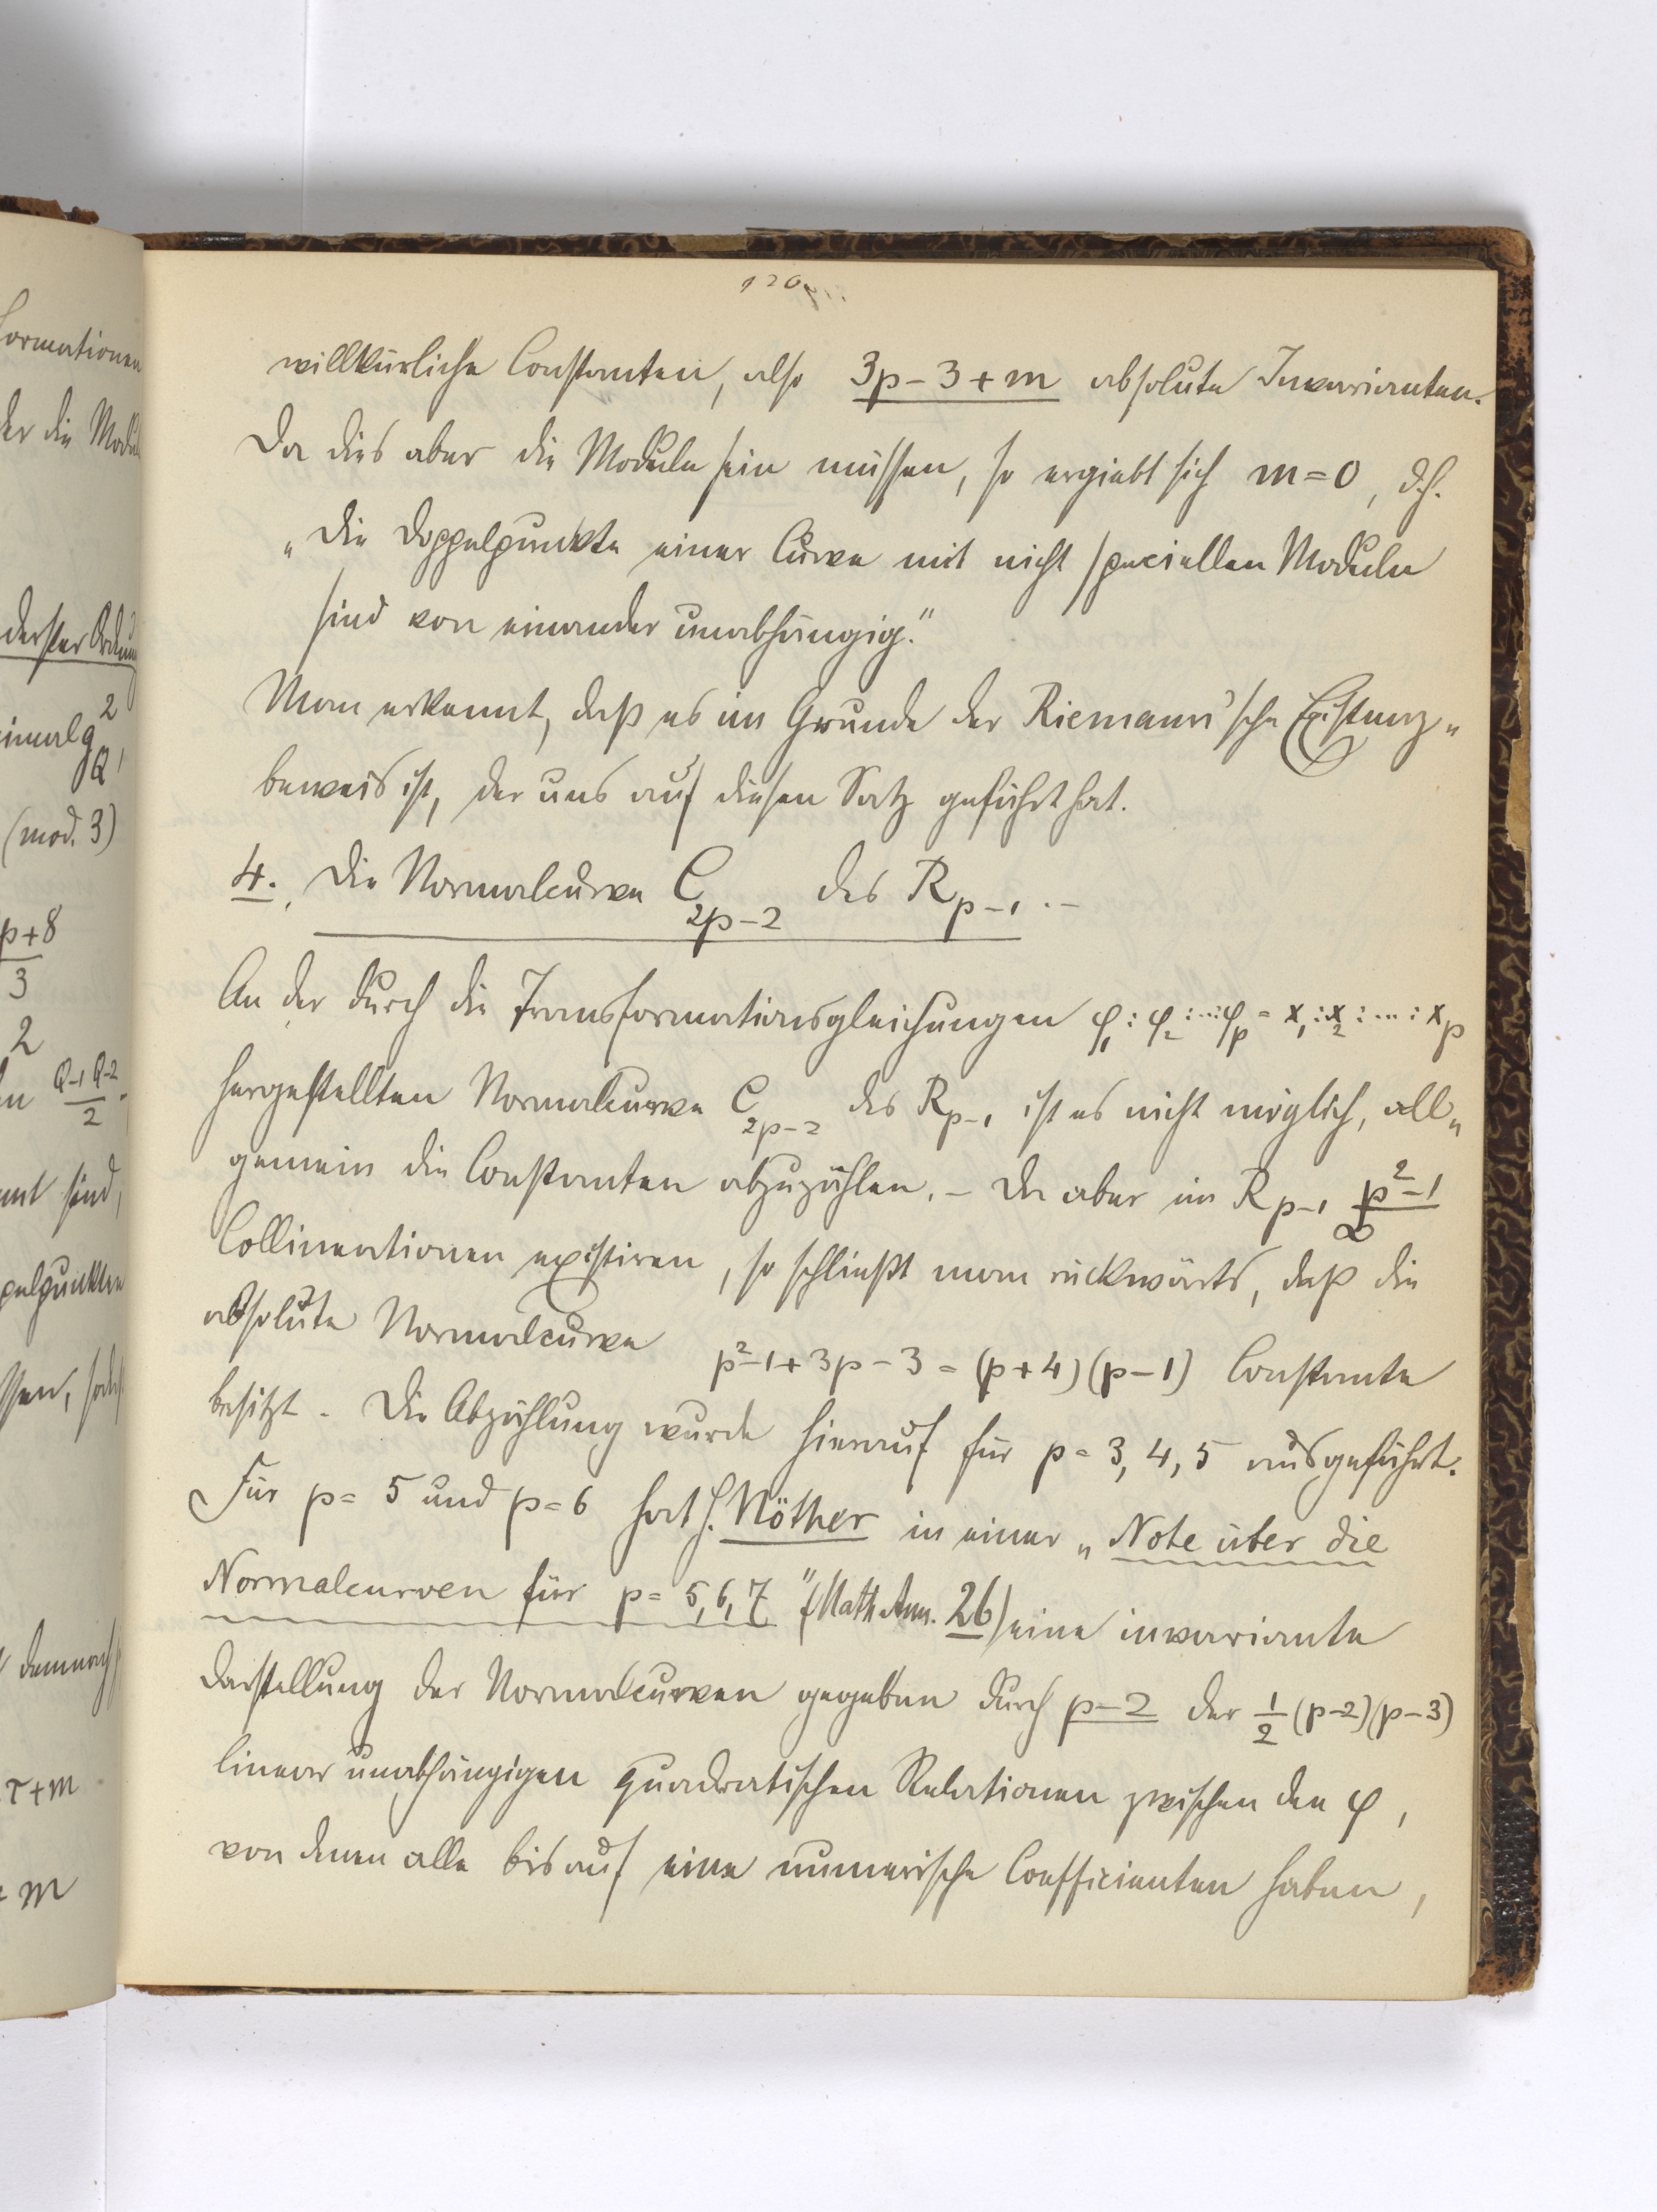 120
willkürliche Constanten, also 3p-3+m absolute Invarianten.
Da dies aber die Moduln sein müssen, so ergiebt sich m=0, d.h.
„Die Doppelpunkte einer Curve mit nicht speciellen Moduln
sind von einander unabhängig."
Man erkennt, daß es im Grunde der Riemann'sche Existenz„
beweis ist, der uns auf diesen Satz geführt hat.
4. Die Normalcurve C_{2p-2} des R_{p-1}.-
An der durch die Transformationsgleichungen φ_1:φ_2:...:φ_p = x_1:x_2:...:x_p
hergestellten Normalcurve C_{2p-2} des R_{p-1} ist es nicht möglich, all„
gemein die Constanten abzuzählen. - Da aber im R_{p-1} ∞^{p²-1}
Collineationen existiren, so schließt man rückwärts, daß die
absolute Normalcurve p²-1+3p-3 = (p+4)(p-1) Constante
besitzt. Die Abzählung wurde hierauf für p=3,4,5 ausgeführt.
Für p=5 und p=6 hat H. Nöther in einer „Note über die
Normalcurven für p=5,6,7" (Math. Ann. 26) eine invariante
Darstellung der Normalcurven gegeben durch p-2 der 1/2 (p-2)(p-3)
linear unabhängigen quadratischen Relationen zwischen den φ,
von denen alle bis auf eine numerische Coefficienten haben,
formationen
der die Moduln
derster Ordnung
(mod. 3)
p+8
3
2
Q-1 Q-2
2
sind,
pelpunkten
demnach
τ+m
+m